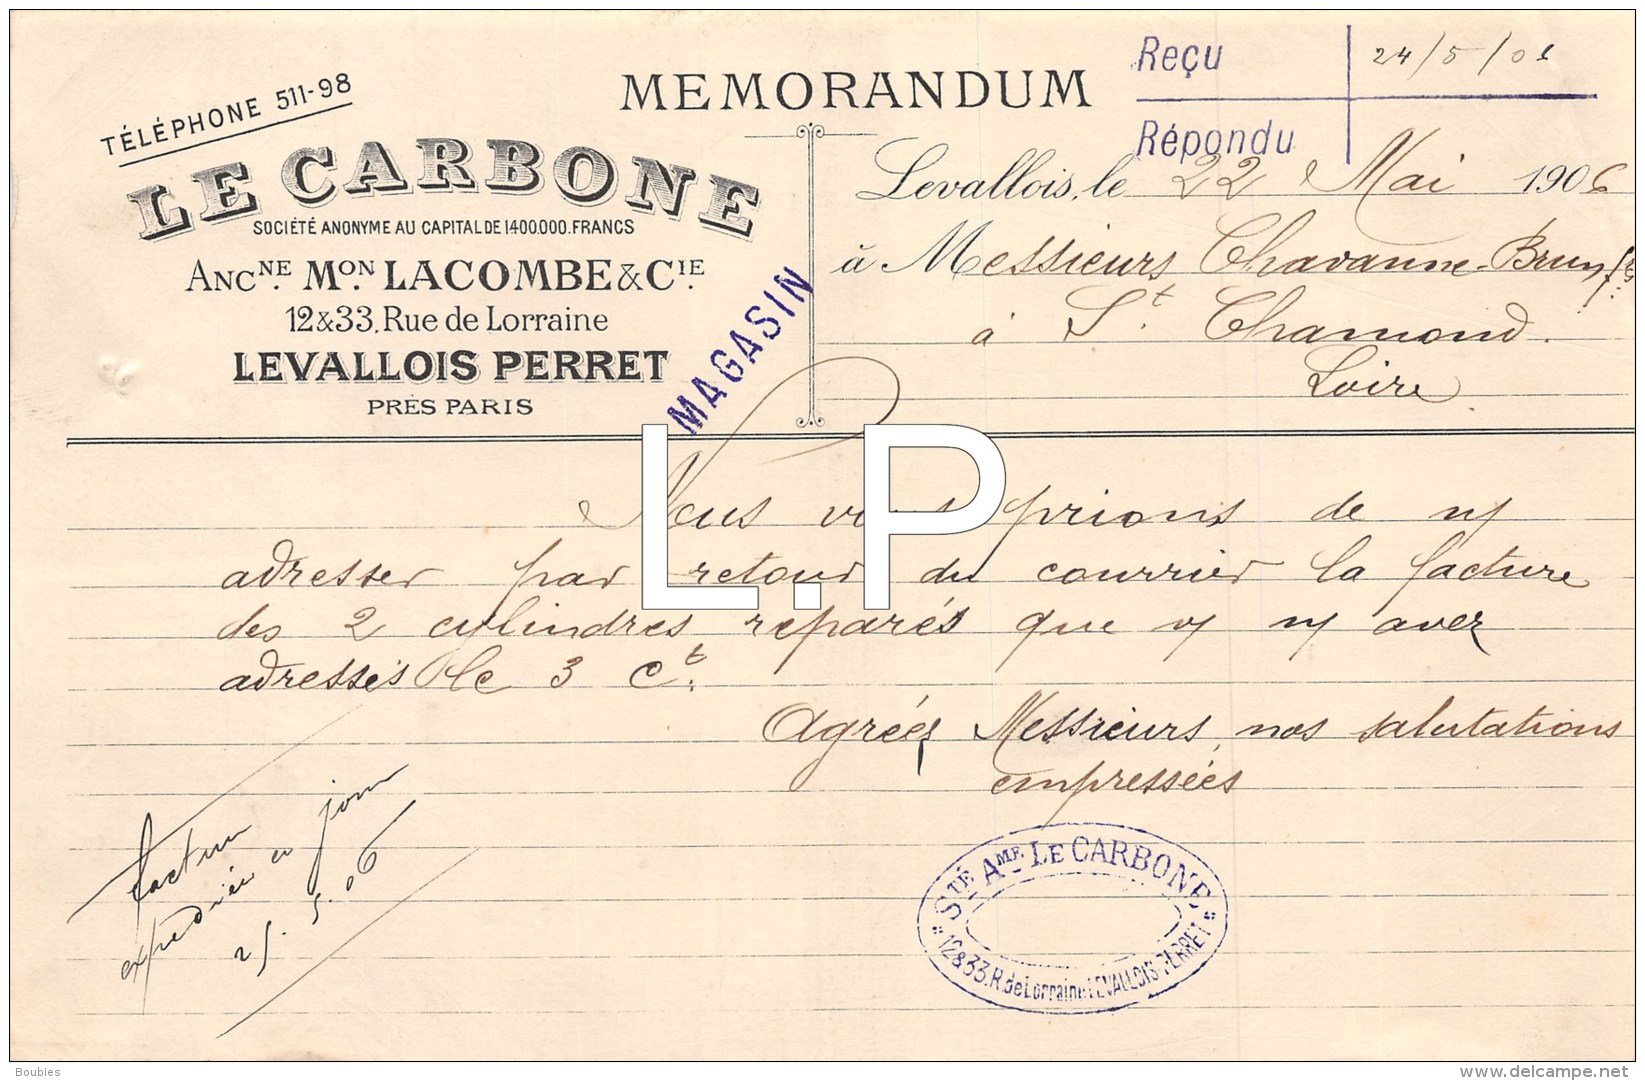 TÉLÉPHONE 511-98
LE CARBONE
SOCIÉTÉ ANONYME AU CAPITAL DE 1400.000.FRANCS
ANC.NE MON. LACOMBE & CIE.
12 & 33, Rue de Lorraine
LEVALLOIS PERRET
PRÈS PARIS
MAGASIN
MEMORANDUM
Reçu 24/5/06
Répondu
Levallois, le 22 Mai 1906
à Messieurs Chavanne-Brun frs
à St. Chamond.
Loire
L.P
Nous vous prions de n/
adresser par retour du courrier la facture
des 2 cylindres reparés que v/ n/ avez
adressés le 3 Ct.
Agréez Messieurs, nos salutations
empressées
facture
expediée ce jour
25.5.06
STÉ AME LE CARBONE
12 & 33. R. de Lorraine LEVALLOIS-PERRET
Boubies
www.delcampe.net